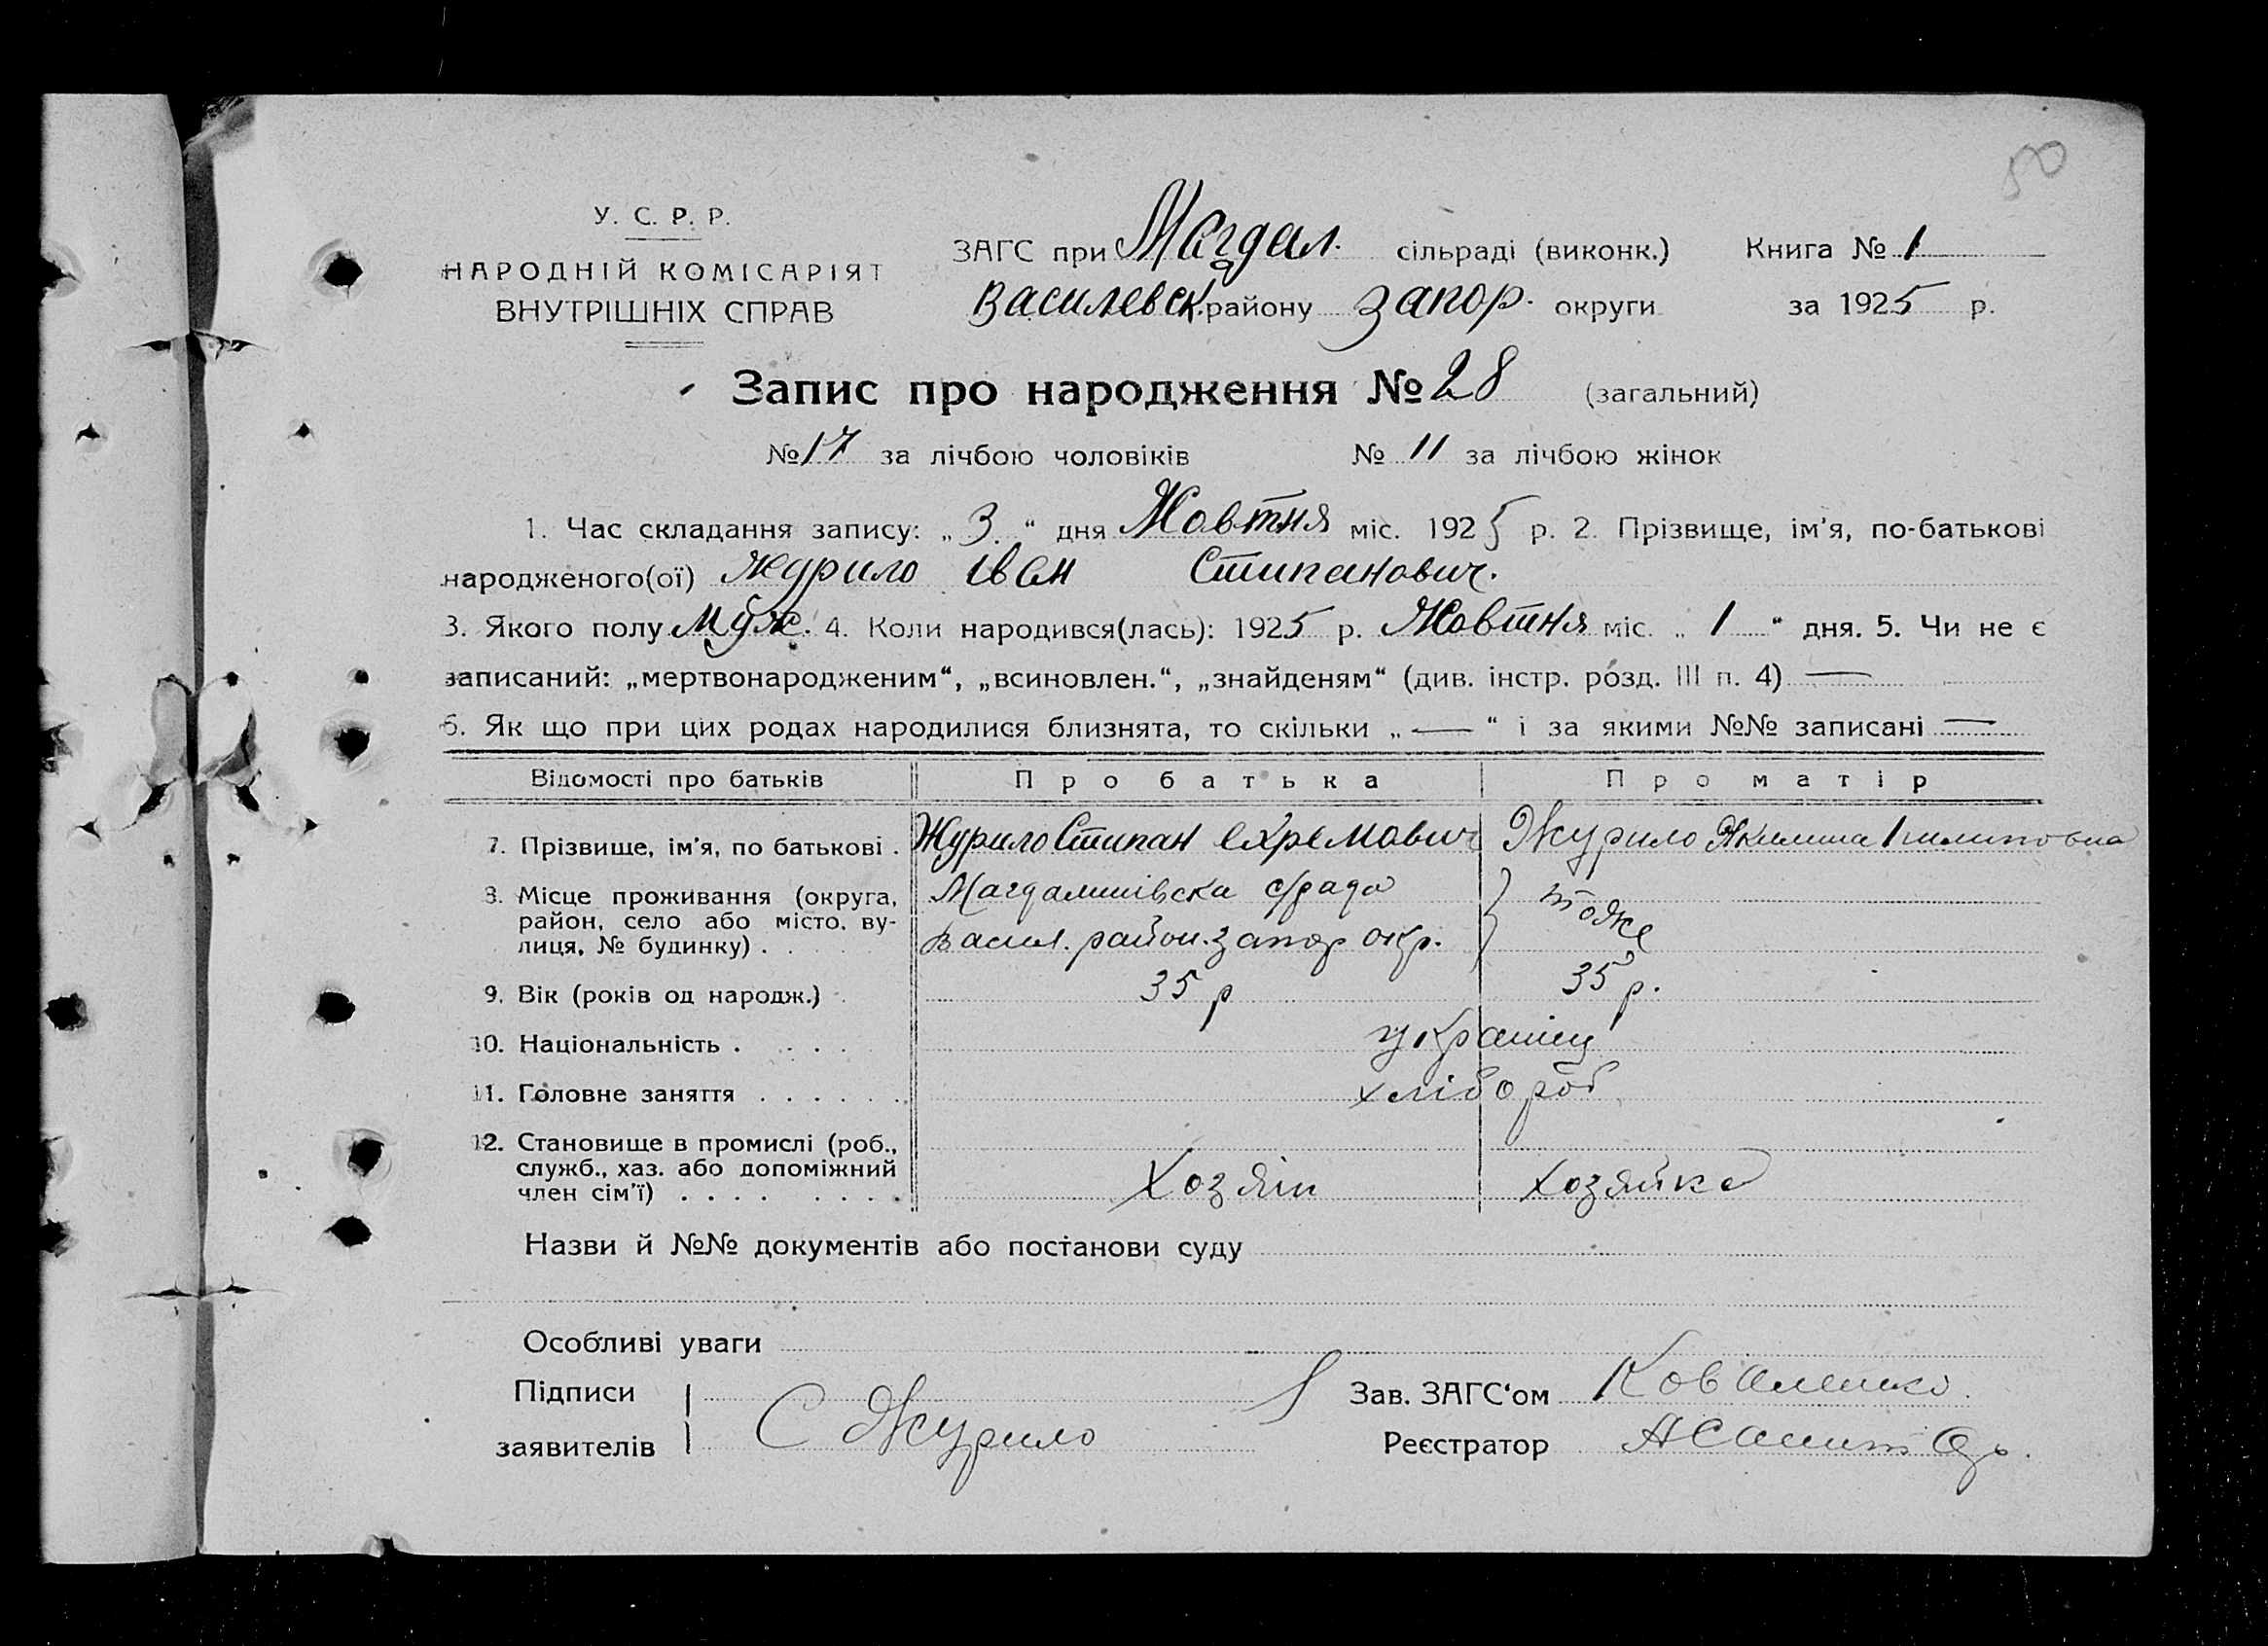 50
У. С. Р. Р.
НАРОДНІЙ КОМІСАРІЯТ
ВНУТРІШНІХ СПРАВ
ЗАГС при Магдал. сільраді (виконк.) Книга № 1
Василевск. району Запор. округи за 1925 р.
Запис про народження № 28 (загальний)
№ 17 за лічбою чоловіків № 11 за лічбою жінок
1. Час складання запису: „ 3 “ дня Жовтня міс. 1925 р. 2. Прізвище, ім’я, по-батькові
народженого(ої) Журило Іван Стипанович.
3. Якого полу муж. 4. Коли народився(лась): 1925 р. Жовтня міс. „ 1 “ дня. 5. Чи не є
записаний: „мертвонародженим“, „всиновлен.“, „знайденям“ (див. інстр. розд. III п. 4) —
6. Як що при цих родах народилися близнята, то скільки „ — “ і за якими №№ записані —
Відомості про батьків Про батька Про матір
7. Прізвище, ім’я, по батькові . Журило Стипан Єхремович Журило Якилина
8. Місце проживання (округа, район, село або місто, вулиця, № будинку) . Магдалинівска с/рада тоже
Васил. район. Запор окр.
9. Вік (років од народж.) . 35 р 35 р.
10. Національність . . . . українец
11. Головне заняття . . . . . . хлібороб
12. Становище в промислі (роб., служб., хаз. або допоміжний член сім’ї) . . . . . . . . Хозяін хозяйка
Назви й №№ документів або постанови суду
Особливі уваги
Підписи Зав. ЗАГС‘ом Коваленко
заявителів С Журило Реєстратор